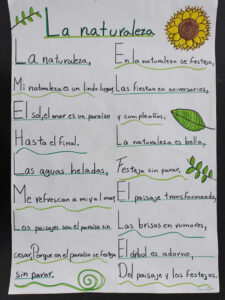 La naturaleza
La naturaleza,
Mi naturaleza es un lindo lugar,
El sol, el mar es un paraiso
Hasta el final.
Las aguas heladas,
Me refrescan a mi y al mar,
Los paisajes son el paraiso sin
cesar, Porque en el paraiso se festeja
sin parar.
En la naturaleza se festeja,
Las fiestan en aniversarios,
y cumpleaños,
La naturaleza es bella,
Festeja sin parar,
El paisaje transformando,
Las brisas en rumores,
El árbol es adorno,
Del paisaje y los festejos.